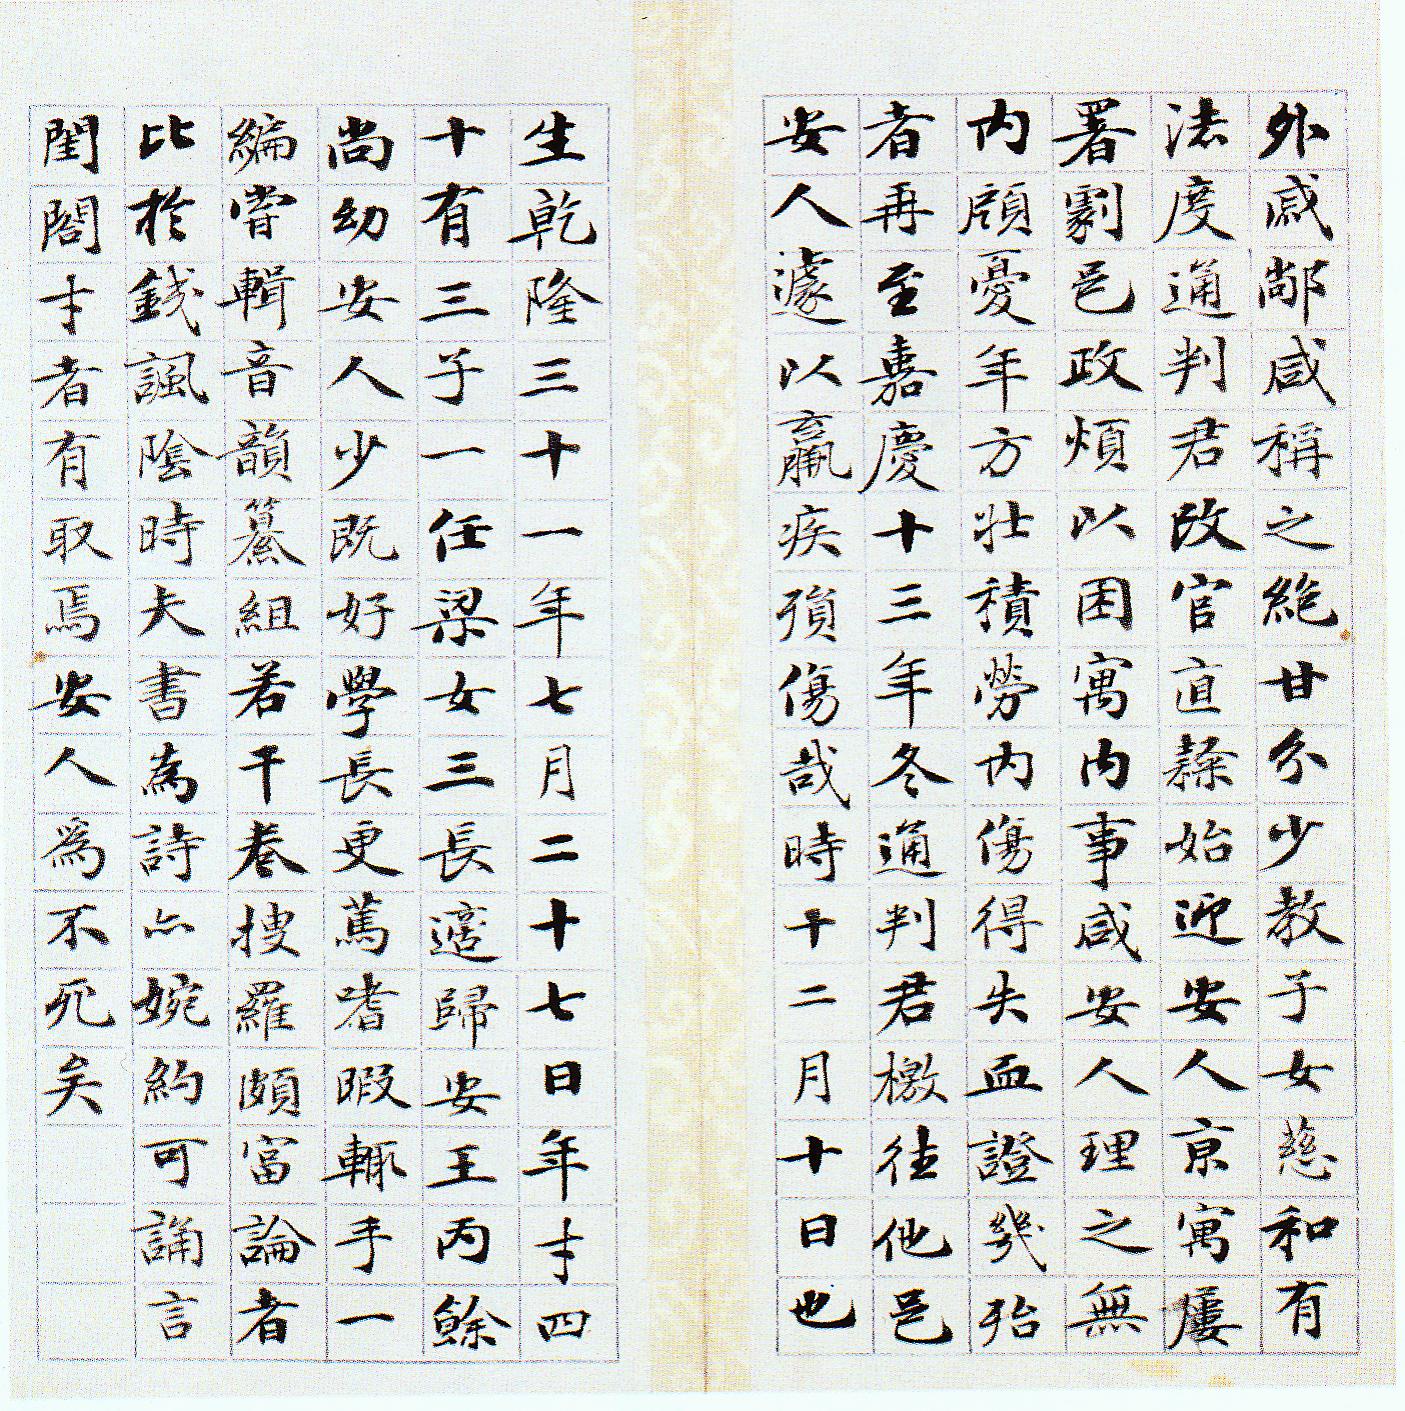 外戚鄰咸稱之絶甘分少教子女慈和有
法度通判君改官直隸始迎安人京寓屢
署劇邑政煩以困寓内事咸安人理之無
内顧憂年方壯積勞内傷得失血證幾殆
者再至嘉慶十三年冬通判君檄往他邑
安人遽以羸疾殞傷哉時十二月十日也
生乾隆三十一年七月二十七日年才四
十有三子一任梁女三長適歸安王丙餘
尚幼安人少既好學長更篤嗜暇輒手一
編嘗輯音韻纂組若干卷搜羅頗富論者
比於錢諷陰時夫書為詩亦婉約可誦言
閨閤才者有取焉安人為不死矣